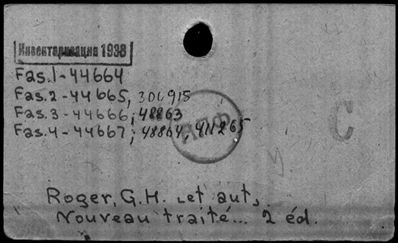 Инвентаризация 1938
Fas.1-44664
Fas.2-44665, 306915
Fas.3-44666; 48863
Fas.4-44667; 48864, 411265
C
Roger, G.H. et aut.,
Nouveau traité... 2 éd.